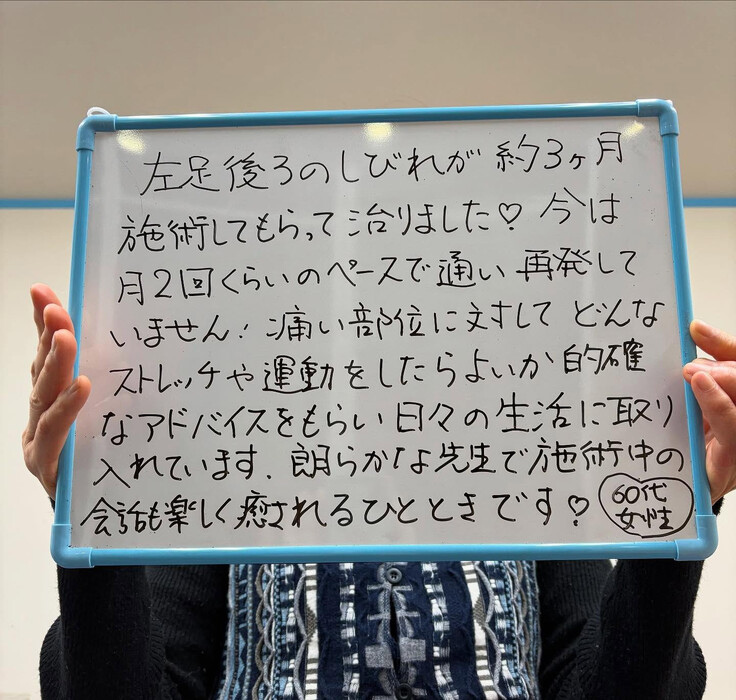 左足後ろのしびれが 約3ヶ月
施術してもらって治りました♡ 今は
月2回くらいのペースで通い 再発して
いません! 痛い部位に対して どんな
ストレッチや運動をしたらよいか 的確
なアドバイスをもらい日々の生活に取り
入れています. 朗らかな先生で施術中の
会話も楽しく癒されるひとときです♡
60代
女性